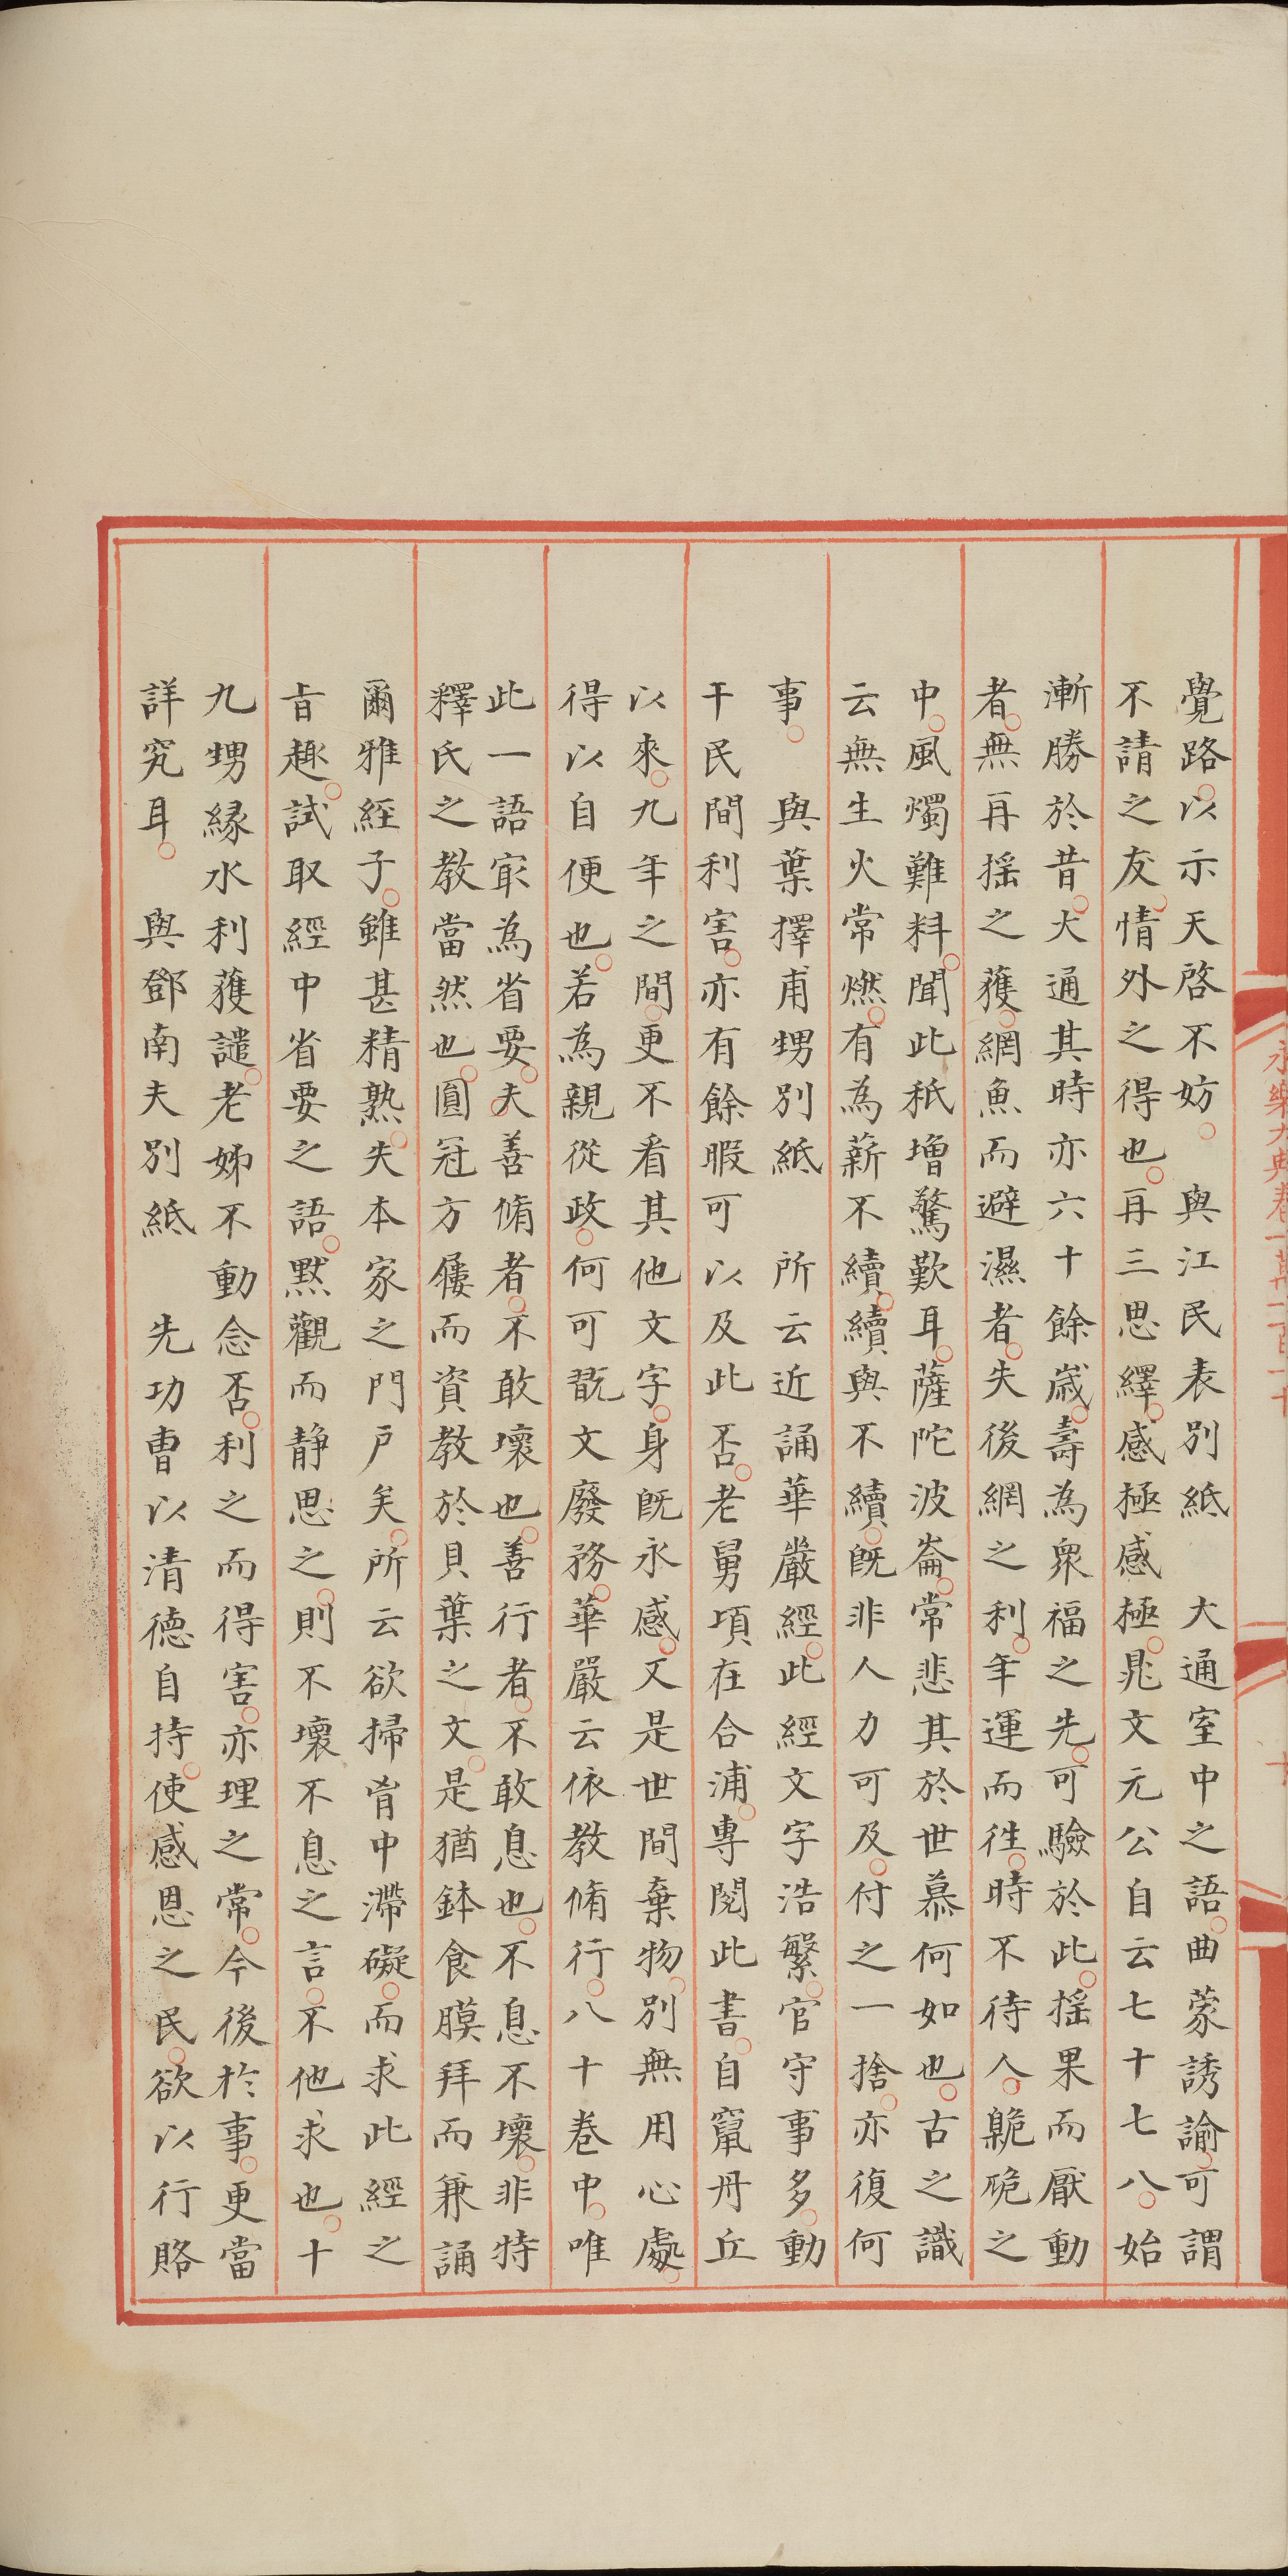 覺路以示天啓不妨　與江民表別紙　大通室中之語曲蒙誘諭可謂
不請之友情外之得也再三思繹感極感極晁文元公自云七十七八始
漸勝於昔大通其時亦六十餘歲壽為衆福之先可驗於此揺果而厭動
者無再揺之獲網魚而避濕者失後網之利年運而徃時不待人臲卼之
中風燭難料聞此秖增驚歎耳薩陀波崙常悲其於世慕何如也古之識
云無生火常燃有為薪不續續與不續旣非人力可及付之一捨亦復何
事　與葉擇甫甥別紙　所云近誦華嚴經此經文字浩繁官守事多動
干民間利害亦有餘暇可以及此否老舅頃在合浦專閱此書自竄丹丘
以來九年之間更不看其他文字身旣永感又是世間棄物別無用心處
得以自便也若為親從政何可翫文廢務華嚴云依教脩行八十卷中唯
此一語㝡為省要夫善脩者不敢壞也善行者不敢息也不息不壞非特
釋氏之教當然也圓冠方屨而資教於貝葉之文是猶鉢食膜拜而兼誦
爾雅經子雖甚精熟失本家之門戶矣所云欲掃胷中滯礙而求此經之
旨趣試取經中省要之語默觀而静思之則不壞不息之言不他求也十
九甥緣水利獲譴老姊不動念否利之而得害亦理之常今後於事更當
詳究耳　與鄧南夫別紙　先功曹以清德自持使感恩之民欲以行賂
永樂大典卷一萬一百一十
十